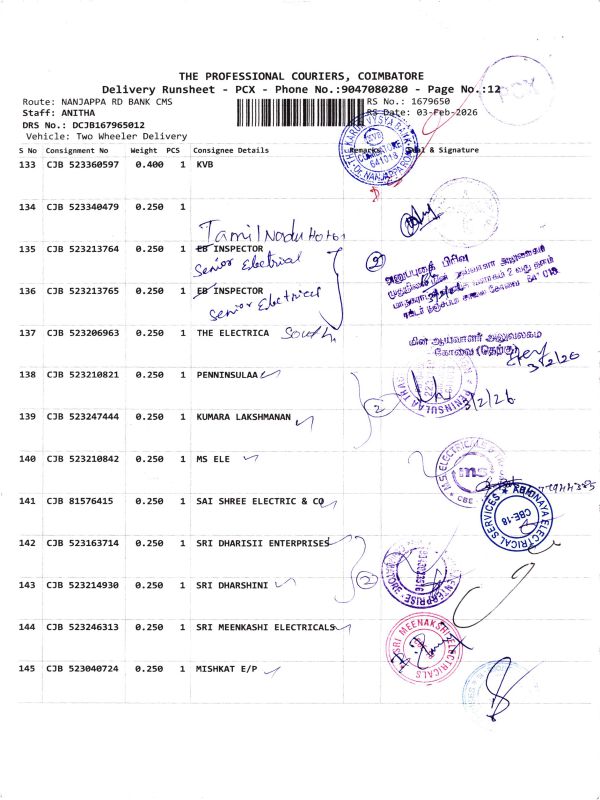 THE PROFESSIONAL COURIERS, COIMBATORE
Delivery Runsheet - PCX - Phone No.:9047080280 - Page No.:12
PCX
Route: NANJAPPA RD BANK CMS
RS No.: 1679650
Staff: ANITHA
RS Date: 03-Feb-2026
DRS No.: DCJB167965012
Vehicle: Two Wheeler Delivery
S No Consignment No Weight PCS Consignee Details Remarks Seal & Signature
133 CJB 523360597 0.400 1 KVB
KVB
COIMBATORE
641018
134 CJB 523340479 0.250 1
Tamil Nadu
135 CJB 523213764 0.250 1 EB INSPECTOR
Senior Electrical
2
அனுப்புகை பிரிவு
136 CJB 523213765 0.250 1 EB INSPECTOR
Senior Electrical
137 CJB 523206963 0.250 1 THE ELECTRICA South
மின் ஆய்வாளர் அலுவலகம்
கோவை (தெற்கு)
3/2/26
138 CJB 523210821 0.250 1 PENNINSULAA
3/2/26
139 CJB 523247444 0.250 1 KUMARA LAKSHMANAN
2
140 CJB 523210842 0.250 1 MS ELE
ms
CBE
141 CJB 81576415 0.250 1 SAI SHREE ELECTRIC & CO
ABHINAYA ELECTRICAL SERVICES
CBE-18
142 CJB 523163714 0.250 1 SRI DHARISII ENTERPRISES
2
ENTERPRISE
143 CJB 523214930 0.250 1 SRI DHARSHINI
144 CJB 523246313 0.250 1 SRI MEENKASHI ELECTRICALS
SRI MEENAKSHI ELECTRICALS
145 CJB 523040724 0.250 1 MISHKAT E/P